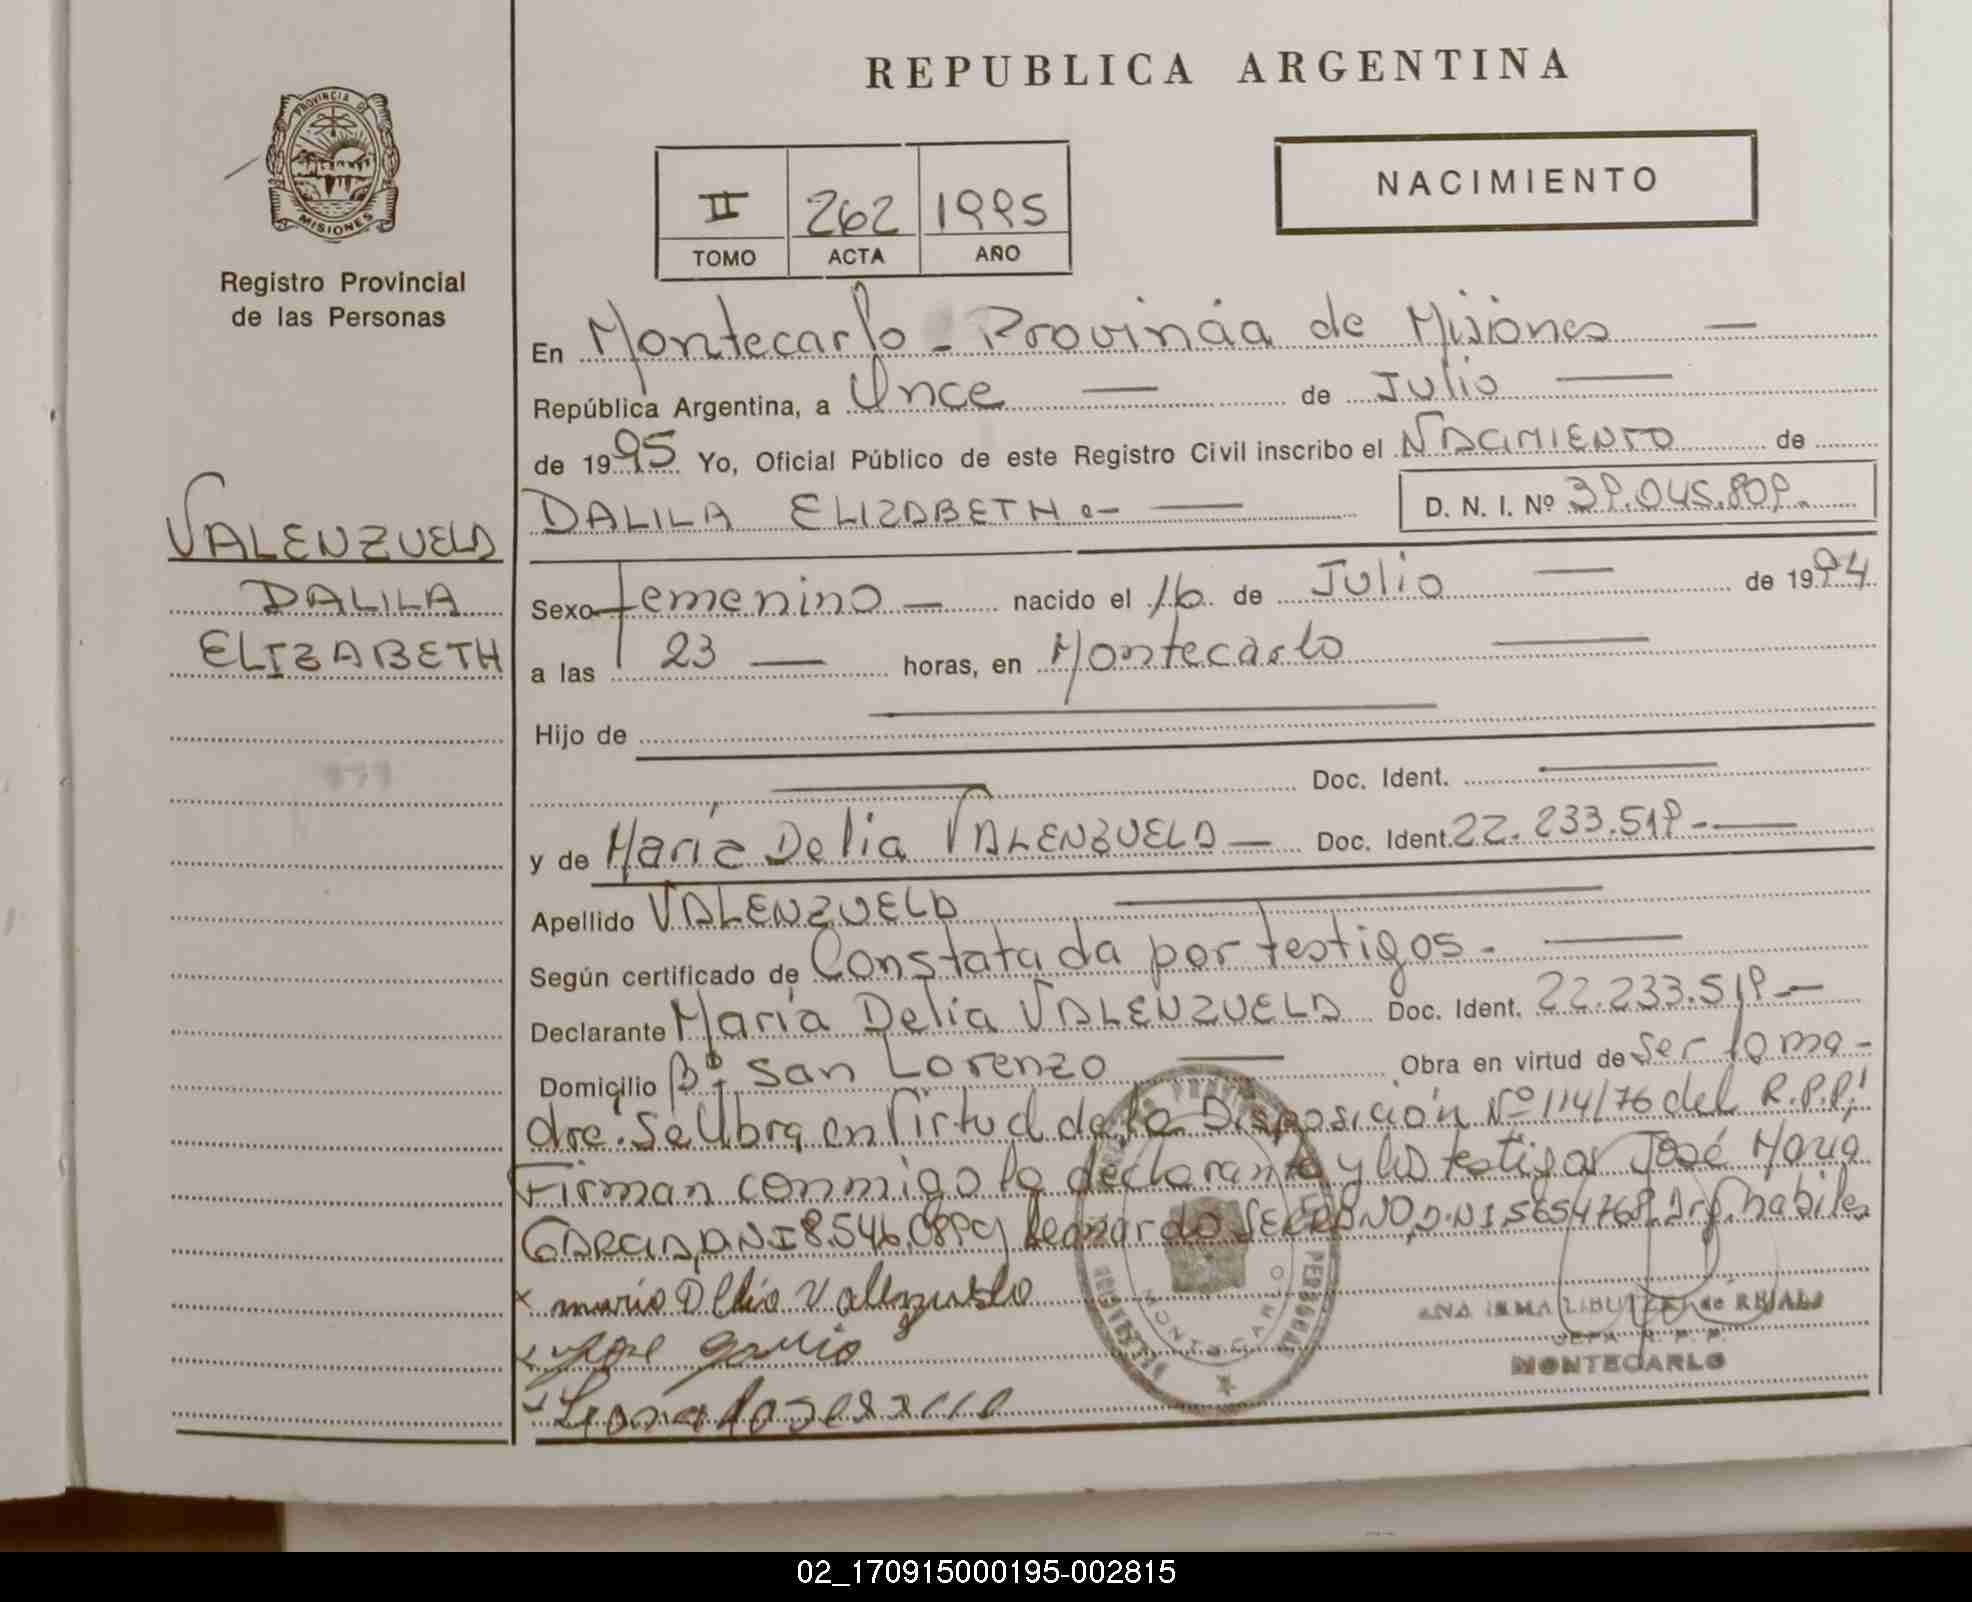 REPUBLICA ARGENTINA
PROVINCIA DE
MISIONES
Registro Provincial
de las Personas
II 262 1995
TOMO ACTA AÑO
NACIMIENTO
VALENZUELA
DALILA
ELIZABETH
En Montecarlo - Provincia de Misiones —
República Argentina, a Once — de Julio —
de 1995 Yo, Oficial Público de este Registro Civil inscribo el NACIMIENTO de
DALILA ELIZABETH.- — D. N. I. Nº 39.045.809.
Sexo femenino — nacido el 16 de Julio — de 1994
a las 23 — horas, en Montecarlo —
Hijo de —
— Doc. Ident. —
y de María Delia VALENZUELA — Doc. Ident. 22.233.519.-—
Apellido VALENZUELA —
Según certificado de Constatada por testigos.- —
Declarante María Delia VALENZUELA Doc. Ident. 22.233.519.—
Domicilio Bº San Lorenzo — Obra en virtud de Ser la ma-
dre. Se Obra en Virtud de la Disposición Nº 114/76 del R.P.P.
Firman conmigo la declarante y los testigos José María
GARCIA, DNI 8.546.089 y Leonardo SERRANO, D.N.I. 5654768, Arg. habiles
x maria Delia Valenzuela
x Jose garcia
x Leonardo serrano
MONTECARLO
ANA IRMA de RIVALS
JEFA R. P. P.
MONTECARLO
02_170915000195-002815